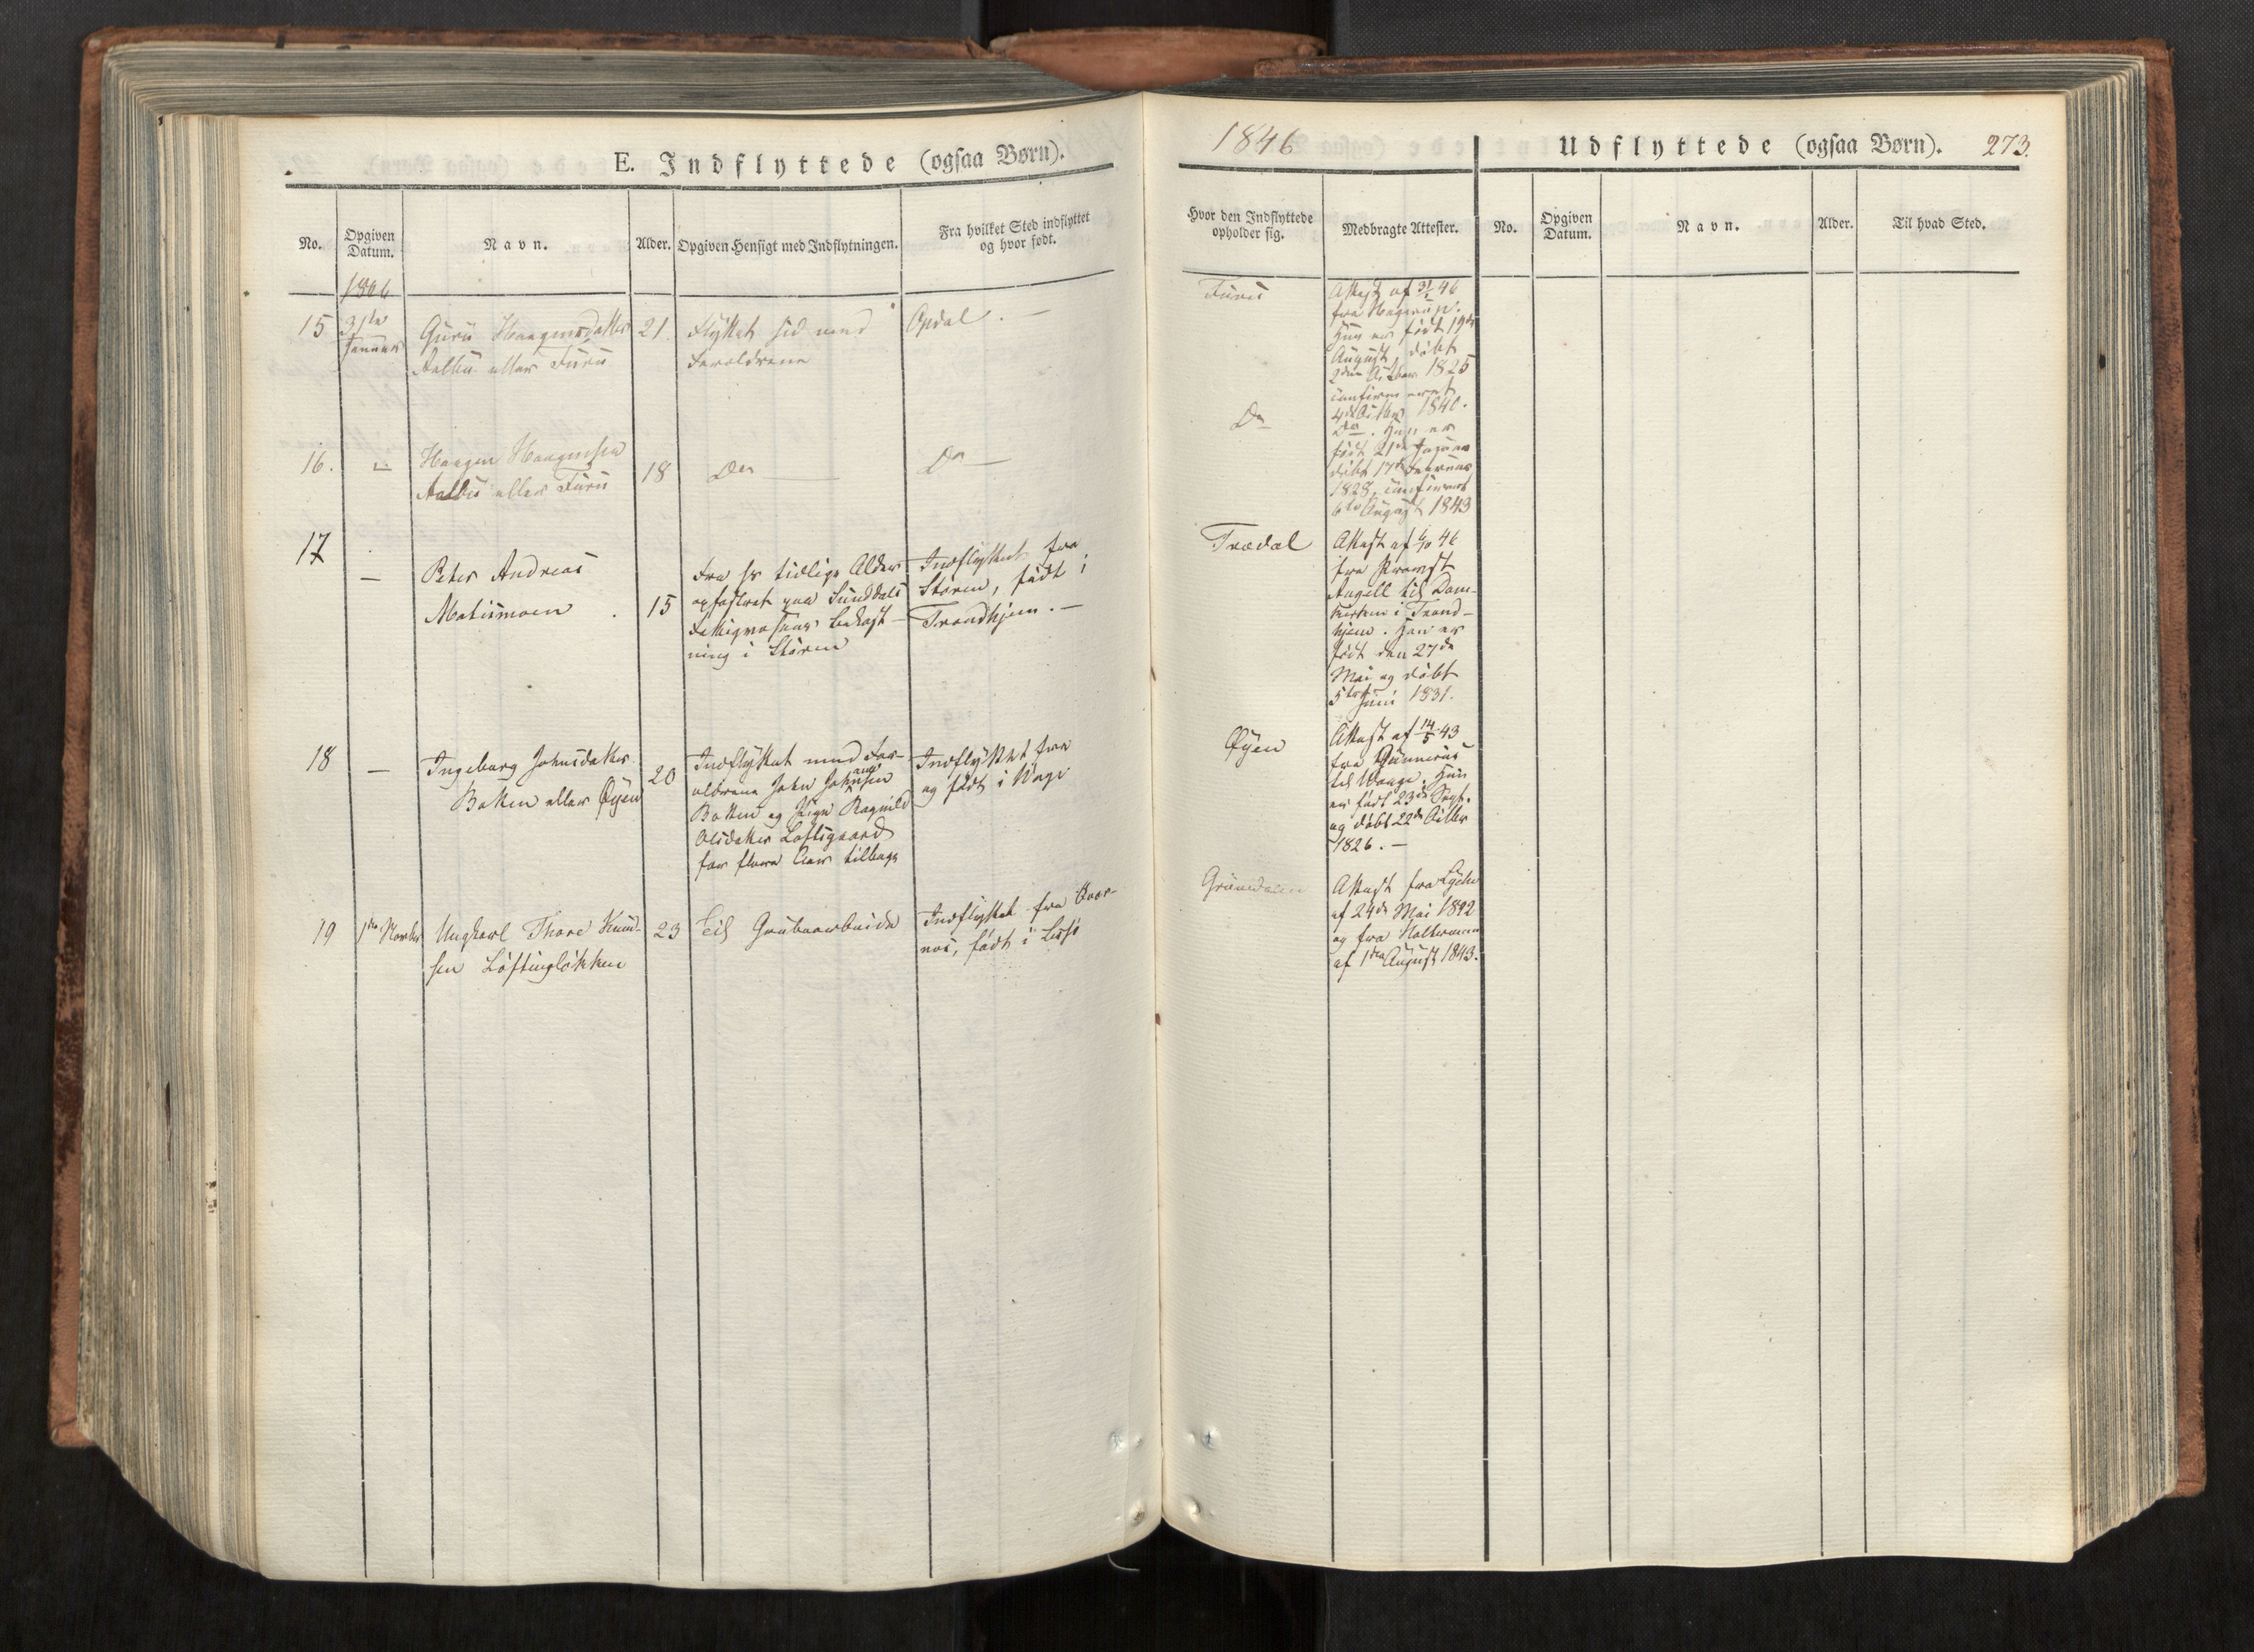 E. Indflyttede (ogsaa Børn).
No.
Opgiven
Datum.
Navn.
Alder.
Opgiven Hensigt med Indflytningen.
Fra hvilket Sted indflyttet
og hvor født.
1846
15
31te
Januar
Guru Haagensdatter
Aalbu eller Furu
21.
Flyttet hid med
Forældrene
Opdal. —
16.
Haagen Haagensen
Aalbu eller Furu
18
Do
Do —
17
—
Peter Andreas
Matismoen
15
Fra sr tidlige Alder
opfostret paa Sunddals
Fattigvæsens Bekost-
ning i Støren
Indflyttet fra
Støren, født i
Trondhjem. —
18
—
Ingeborg Johnsdatter
Bakken eller Øyen
20
Indflyttet med For-
ældrene John Johnsen
Bakken og Pige Ragnild
Olsdatter Loftsgaard
for flere Aar tilbage
Indflyttet fra
og født i Vage
19
1te Novbr
Ungkarl Thore Knud-
sen Løftingløkken
23
Til Grubearbeide
Indflyttet fra
født i
1846
Udflyttede (ogsaa Børn).
273.
Hvor den Indflyttede
opholder sig.
Medbragte Attester.
No.
Opgiven
Datum.
Navn.
Alder.
Til hvad Sted.
Furu
Attest af 31/1 46
fra Hagerup.
Hun er født 19de
August, døbt
2den Octbr 1825
confirmeret
4de Octbr 1840.
Do
Do. Han er
født 21de Januar
døbt 17de Februar
1828, confirmert
6te August 1843
Trædal
Attest af 46
fra Provst
Angell til Dom-
kirken i Trond-
hjem. Han er
født den 27de
Mai og døbt
5te Juni 1831.
Øyen
Attest af 14/5 43
fra Gunnerus
til Vaage. Hun
er født 23de Sept.
og døbt 22de Octbr
1826. —
Gruvedalen
Attest fra Lyche
af 24de Mai 1842
og fra Holtermann
af 1ste August 1843.